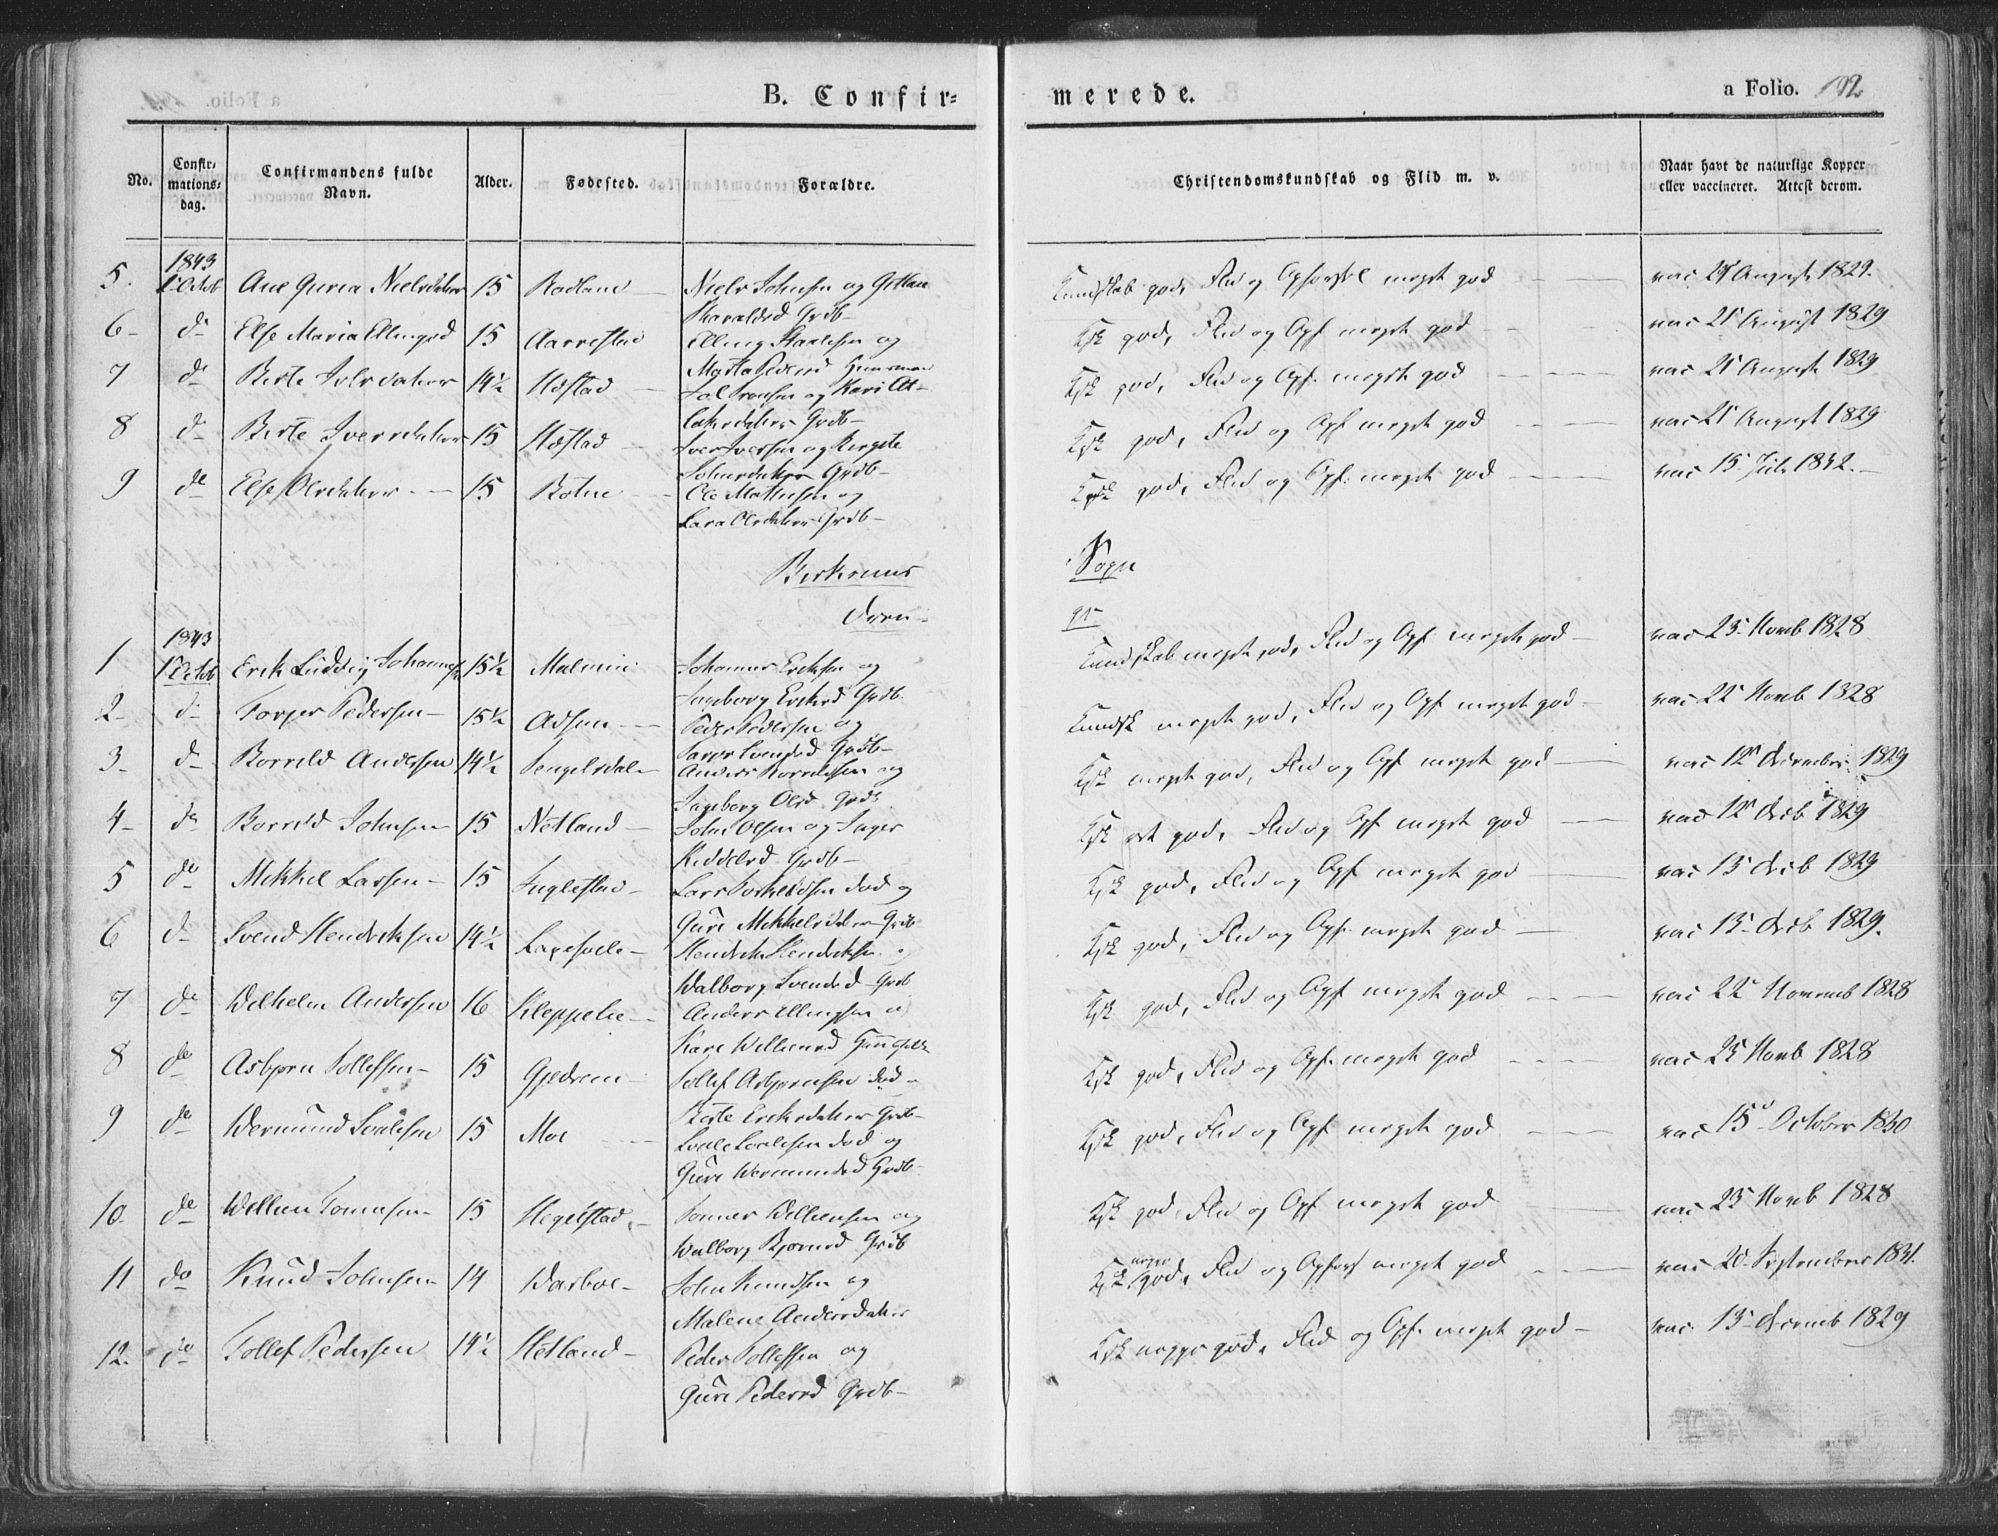 B. Confir=
merede.
a Folio. 192
No.
Confir=
mations=
dag.
Confirmandens fulde
Navn.
Alder.
Fødested.
Forældre.
Christendomskundskab og Flid m. v.
Naar havt de naturlige Kopper
eller vaccineret. Attest derom.
1843
5. 1 Octob Ane Guria Nielsdatter 15 Rodland Niels Johnsen og
Haraldsd Grdb- Kundskab god, Flid og Opførsel meget god vac 21 August 1829.
6 d Else Maria Ellingsd 15 Aarrestad Elling og
Marta Pedersd Ksk god, Flid og Opf meget god vac 21 August 1829
7 d Berte datter 14½ Hæstad og Kari
datter Grdb- Ksk god, Flid og Opf. meget god vac 21 August 1829
8 d Berte Iversdatter 15 Hæstad Iver Iversen og Birgite
Johnsdatter Grdb- Ksk god, Flid og Opf meget god vac 21 August 1829
9 de Else Olsdatter 15 Botne Ole Mathisen og
Lara Olsdatter Grdb- Ksk god, Flid og Opf. meget god vac 15 Juli 1832.
Birkrems
Sogn
Dren-
ge
1843
1 1 Octob Erik Ludvig Johannes 15½ Malmin Johannes Eriksen og
Ingeborg Eriksd Grdb. Kundskab meget god, Flid og Opf meget god vac 23 Novb 1828
2 d Torger Pedersen 15½ Peder Pedersen og
Svendsd Grdb- Kundsk meget god, Flid og Opf meget god vac 22 Novb 1828
3 d Borrild Andersen 14½ Tengelsdal Anders Borrildsen og
Ingeborg Olsd Grdb. Ksk meget god, Flid og Opf meget god vac 12 December 1829
4 de Borrild Johnsen 15 Netland John Olsen og Inger
Grdb- Ksk ret god, Flid og Opf meget god vac 12 Decb 1829
5 do Mikkel Larsen 15 Fuglestad Lars død og
Guri Mikkelsdatter Grdb Ksk god, Flid og Opf meget god vac 13 Decb 1829
6 d Svend Hendriksen 14½ Hendrik Hendriksen
Walborg Svendsd Grdb Ksk god, Flid og Opf meget god vac 13 Decb 1829.
7 de Wilhelm Andersen 16 Kleppelie Anders Ellingsen
Kari Ksk god, Flid og Opf meget god vac 22 Novemb 1828
8 de Asbjørn Tollefsen 15 Gjedrem Tollef Asbjørnsen død
Berte Eriksdatter Grdb- Ksk god, Flid og Opf meget god vac 23 Novb 1828
9 de Wermund Sverlsen 15 Moe død og
Guri Wermundsd Grdb- Ksk god, Flid og Opf meget god vac 15 October 1830
10. de Willum Tonnesen 15 Hegelstad Tonnes og
Walborg Bjørnsd Grdb Ksk god, Flid og Opf meget god vac 23 Novb 1828
11 do Knud Johnsen 14 Wasboe John Knudsen og
Malene Andersdatter Ksk god, Flid og Opførs meget god vac 20 September 1831.
12. do Tollef Pedersen 14½ Hetland Peder Tollefsen og
Guri Pedersd Grdb- Ksk god, Flid og Opf. meget god vac. 13 Decemb 1829